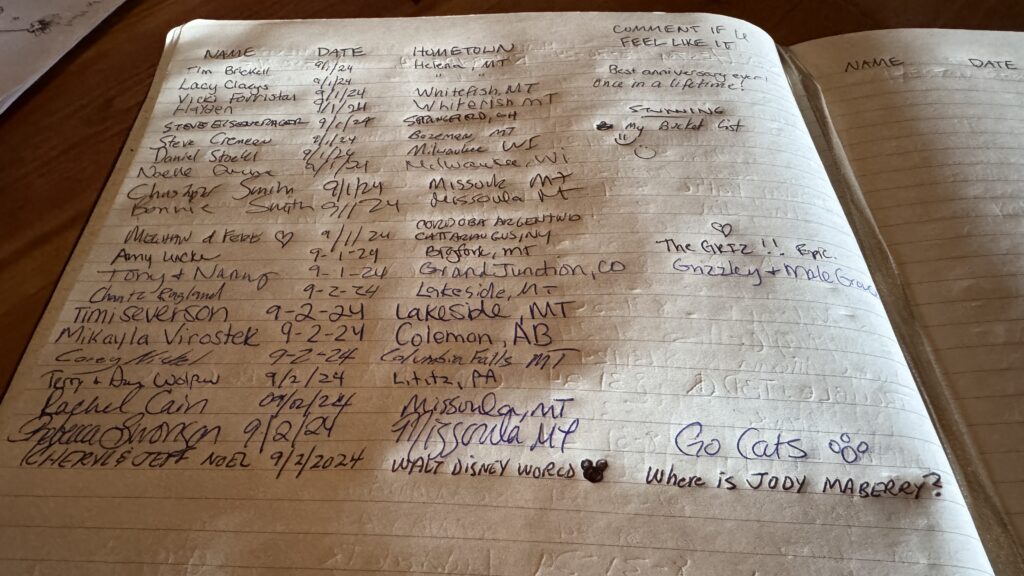 NAME DATE HOMETOWN COMMENT IF U FEEL LIKE IT
Tim Brickell 9/1/24 Helena, MT
Lacy Clays 9/1/24 " " Best anniversary ever! Once in a lifetime!
Vicki Forristal 9/1/24 Whitefish, MT
Hayden 9/1/24 Whitefish MT
STEVE 9/1/24 OH STUNNING
Steve 9/1/24 Bozeman, MT My Bucket List
Daniel 9/1/24 Milwaukee WI
Noelle 9/1/24 Milwaukee, WI
Smith 9/1/24 Missoula MT
Bonnie Smith 9/1/24 Missoula MT
MEGHAN & FERB ♡ 9/1/24 CORDOBA ARGENTINA CATTARAUGUS, NY ♡
Amy 9-1-24 Bigfork, MT The GRIZ!! Epic.
Tony & Nanng 9-1-24 Grand Junction, CO Grizzley + Male
England 9-2-24 Lakeside, MT
Timi severson 9-2-24 Lakeside, MT
Mikayla Virostek 9-2-24 Coleman, AB
Corey 9-2-24 Columbia Falls MT
Terry + 9/2/24 Lititz, PA
Rachel Cain 09/2/24 Missoula, MT
Rebecca Swanson 9/2/24 Missoula, MT Go Cats
CHERYL & JEFF NOEL 9/2/2024 WALT DISNEY WORLD Where is JODY MABERRY?
NAME DATE